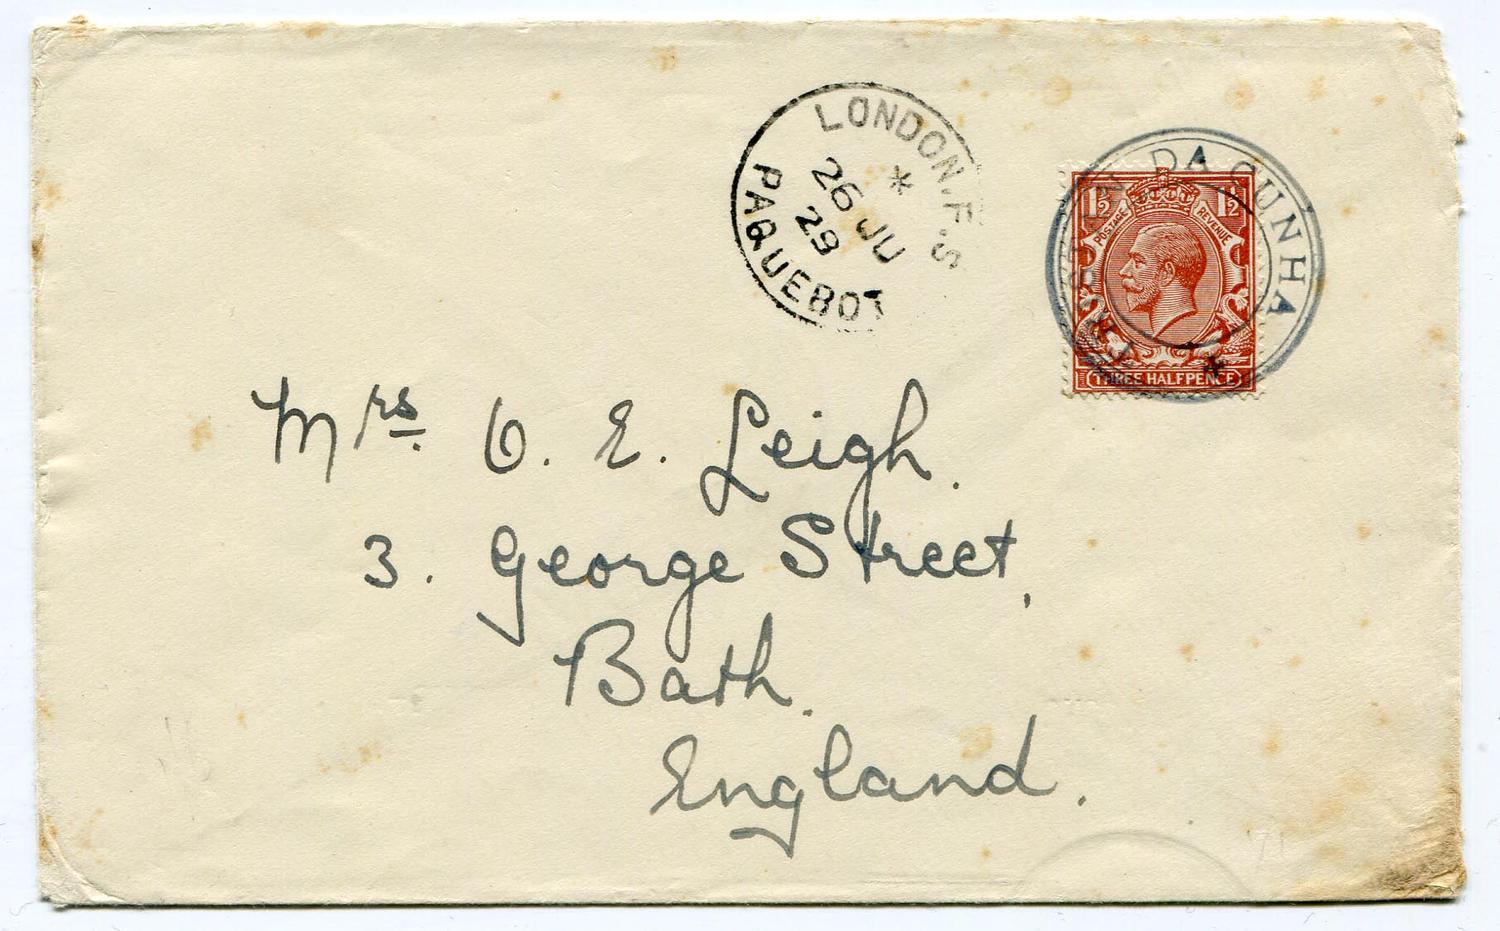 LONDON.F.S
*
26 JU
29
PAQUEBOT
TRISTAN DA CUNHA
1½ 1½
POSTAGE REVENUE
THREE HALFPENCE
Mrs. O. E. Leigh.
3. George Street,
Bath.
England.